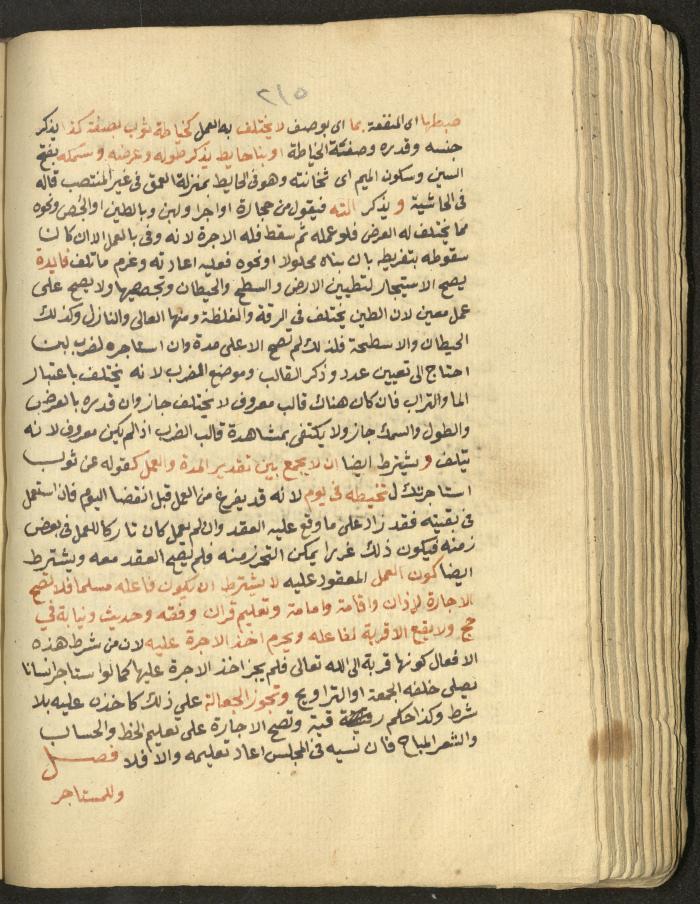 ٢١٥
ضبطها اى المنفعة بما اى بوصف لا يختلف به العمل كخياطة ثوب بصفة كذا يذكر
جنسه وقدره وصفة الخياطة او بناحايط يذكر طوله وعرضه وسمكه بفتح
السين وسكون الميم اى ثخانته وهو فى الحايط بمنزلة العمق فى غير المنتصب قاله
فى الحاشية ويذكر آلته فيقول من حجارة او اجر او لبن وبالطين او الجص ونحوه
مما يختلف له الغرض فلو عمله ثم سقط فله الاجرة لانه وفى بالعمل الا ان كان
سقوطه بتفريطه بان بناه محلولا او نحوه فعليه اعادته وغرم ما تلف فايدة
يصح الاستيجار لتطيين الارض والسطح والحيطان وتجصيصها ولا يصح على
عمل معين لان الطين يختلف فى الرقة والغلظة ومنها العالى والنازل وكذلك
الحيطان والاسطحة فلذلك لم تصح الا على مدة وان استاجره لضرب لبن
احتاج الى تعيين عدد وذكر القالب وموضع الضرب لانه يختلف باعتبار
الما والتراب فان كان هناك قالب معروف لا يختلف جاز وان قدره بالعرض
والطول والسمك جاز ولا يكتفى بمشاهدة قالب الضرب اذا لم يكن معروف لانه
يتلف ويشترط ايضا ان لا يجمع بين تقدير المدة والعمل كقوله عن ثوب
استاجرتك لتخيطه فى يوم لانه قد يفرغ من العمل قبل انقضا اليوم فان استعمل
فى بقيته فقد زاد على ما وقع عليه العقد وان لم يعمل كان تاركا للعمل فى بعض
زمنه فيكون ذلك غررا يمكن التحرز منه فلم يصح العقد معه ويشترط
ايضا كون العمل المعقود عليه لا يشترط ان يكون فاعله مسلما فلا تصح
الاجارة لاذان واقامة وامامة وتعليم قران وفقه وحديث ونيابة فى
حج ولا يقع الا قربة لفاعله ويحرم اخذ الاجرة عليه لان من شرط هذه
الافعال كونها قربة الى الله تعالى فلم يجز اخذ الاجرة عليها كما لو استاجر انسانا
يصلى خلفه الجمعة او التراويح وتجوز الجعالة على ذلك كاخذه عليه بلا
شرط وكذا حكم رقية وتصح الاجارة على تعليم الخط والحساب
والشعر المباح فان نسيه فى المجلس اعاد تعليمه والا فلا فصل
وللمستاجر